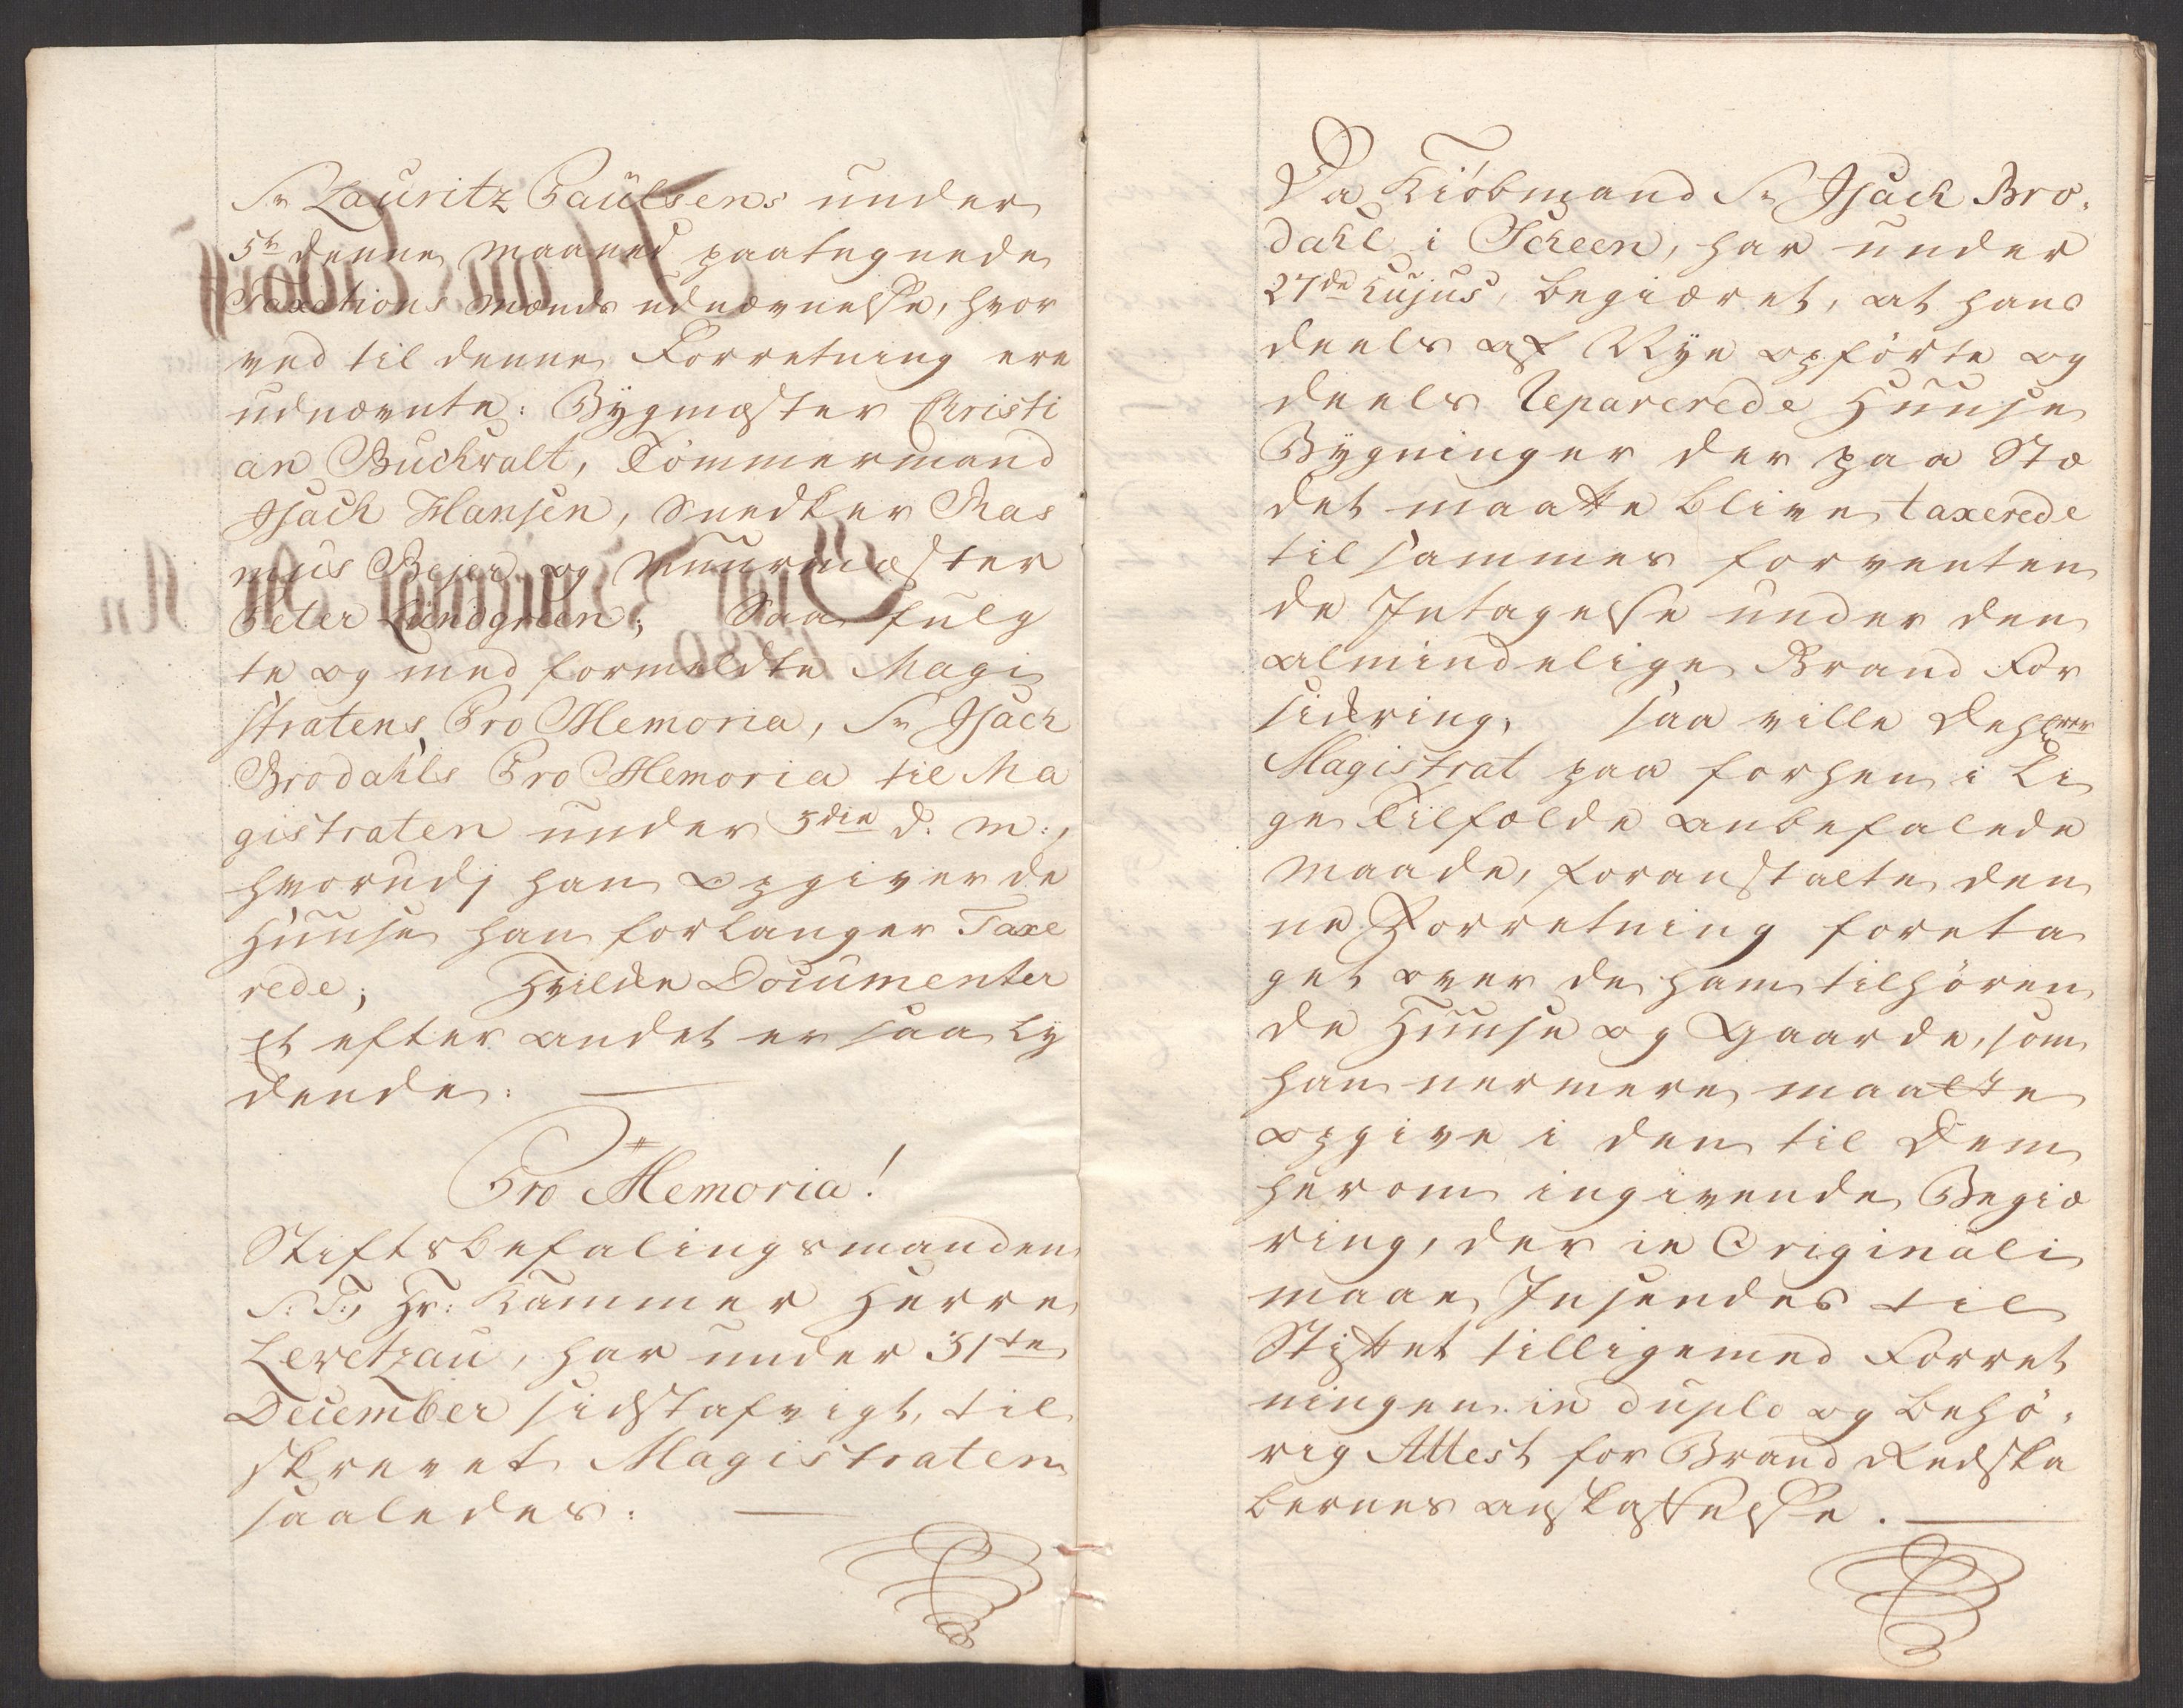 Sr Lauritz Paulsens under
5te denne maaned paategnede
Taxations Mænds udnævnelse, hvor
ved til denne Forretning ere
udnævnte: Bygmester Christi
an Buchvalt, Tømmermand
Isach Hansen, Snedker Ras
mus Bejer og Muurmester
Peter Lundgreen; Saa fulg
te og med formeldte Magi
stratens Pro Memoria, Sr Isach
Brodahls Pro Memoria til Ma
gistraten under 5die d: m:,
hvorudj han opgiver de
Huuse han forlanger Taxe
rede; Hvilke Documenter
et efter andet er saa ly
dende:
Pro Memoria!
Stiftsbefalingsmanden
S: T:, Hr: Kammer Herre
Levetzau, har under 31te
December sidstafvigt, til
skrevet Magistraten
saaledes:
Da Kiöbmand Sr Isach Bro„
dahl i Scheen, har under
27de hujus, begiæret, at hans
deels af Nye opförte og
deels Reparerede Huuse
Bygninger der paa Stæ
det maatte blive taxerede
til sammes forventen
de Intagelse under den
almindelige Brand For
sikring, saa ville De
Magistrat paa forhen i Li
ge Tilfælde anbefalede
Maade, foranstalte den
ne Forretning foreta
get over de ham tilhören
de Huuse og Gaarde, som
han nermere maatte
opgive i den til Dem
herom ingivende Begiæ
ring, der in Originali
maae Insendes til
Stiftet tilligemed Forret
ningen in duplo og behö„
rig Attest for Brand Redska
bernes anskaffelse.